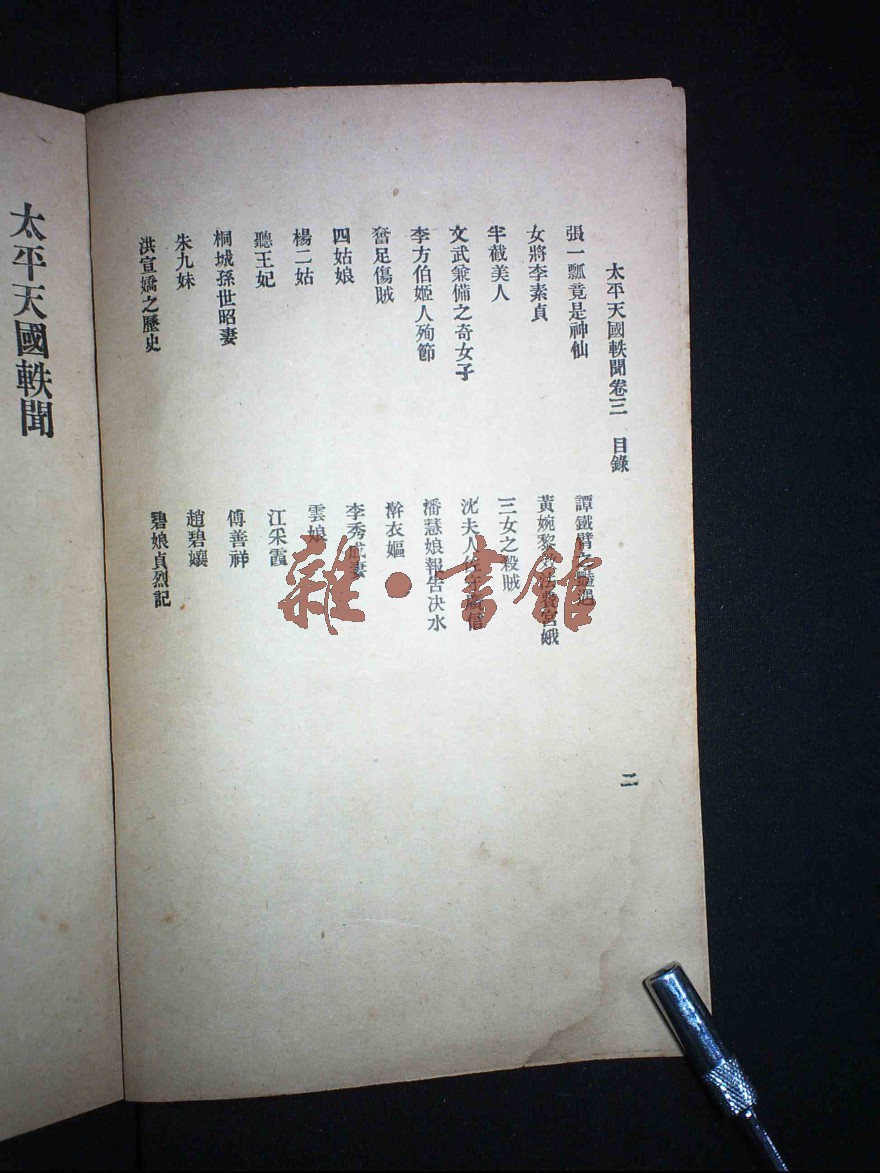 太平天國軼聞卷三 目錄
二
張一瓢竟是神仙
譚鐵臂之遇
女將李素貞
黃婉黎宮娥
半截美人
三女之殺賊
文武兼備之奇女子
沈夫人佐
李方伯姬人殉節
潘慧娘報告決水
奮足傷賊
衣嫗
四姑娘
李秀成妻
楊二姑
雲娘
聽王妃
江采霞
桐城孫世昭妻
傅善祥
朱九妹
趙碧孃
洪宣嬌之歷史
碧娘貞烈記
太平天國軼聞
雜·書館